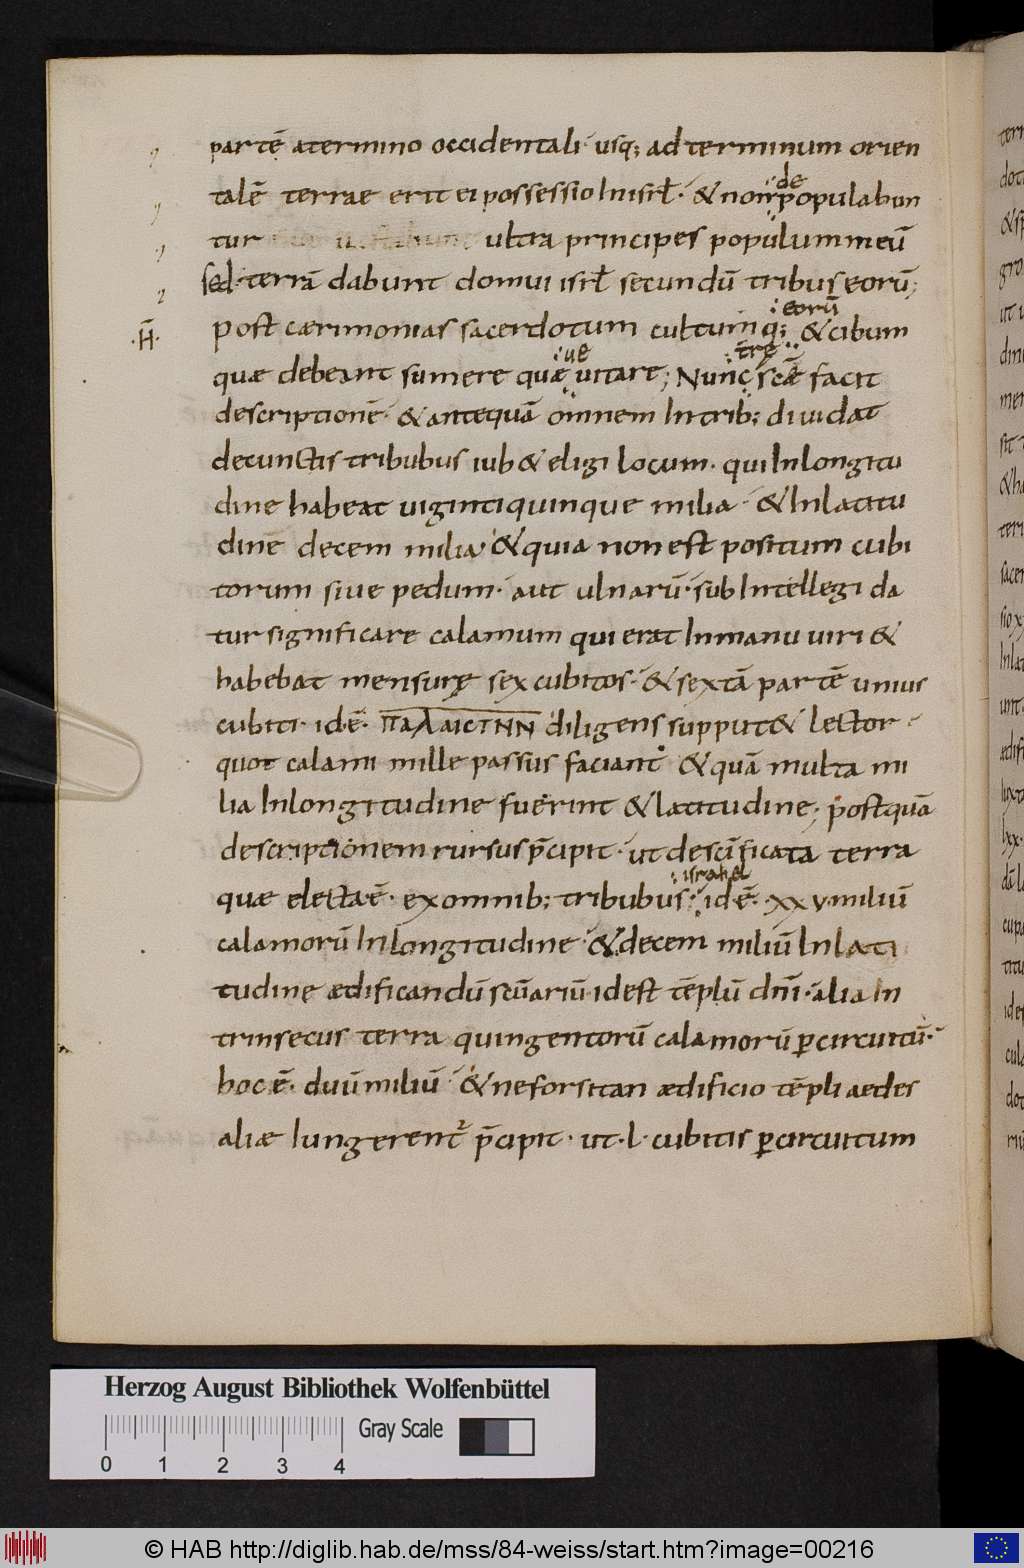 partē a termino occidentali · usq; ad terminum orien
de
talē terrae erit ei possessio In isrł · & non populabun
tur ultra principes populum meū
sed · terrā dabunt domui isrł secundū tribus eorū;
eorū
·H̄· post cærimonias sacerdotum cultum q; & cibum
ue trę
quæ debeant sumere quæ uitare; Nunc scǣ facit
descriptionē · & antequā omnem In trib; diuidat
de cunctis tribubus iub& eligi locum · qui In longitu
dine habeat uiginti quinque milia · & In latitu
dine decem milia · & quia non est positum cubi
torum siue pedum · aut ulnarū · subIntellegi da
tur significare calamum qui erat In manu uiri &
habebat mensurę sex cubitos · & sextā partē unius
cubiti · id · ē · παλαιcτΝΝ diligens supput& lector ·
quot calami mille passus faciant · & quā multa mi
lia In longitudine fuerint & latitudine; postquā
descriptionem rursus p̄cipit · ut desc̄ificata terra
israhel
quæ electa ē · ex omnib; tribubus · id ē · xxv · miliū
calamorū In longitudine · & decem miliū In lati
tudine ædificandū scūariū · id est tēplū dn̄i · alia In
trinsecus terra quingentorū calamorū ꝑ circuitū ·
hoc ē · duū miliū · & ne forsitan ædificio tēpli aedes
aliæ Iungerent̄ p̄cipit · ut · l · cubitis ꝑ circuitum
Herzog August Bibliothek Wolfenbüttel
Gray Scale
0 1 2 3 4
© HAB http://diglib.hab.de/mss/84-weiss/start.htm?image=00216